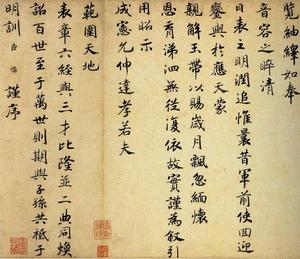 覽紬繹如奉
音容之睟清
日表之明潤追惟曩昔軍前使回迎
鑾輿於應天蒙
親解玉帶以賜歲月飄忽緬懷
恩育涕泗無從復依故實謹為叙引
用昭示
成憲允仰達孝若夫
範圍天地
表章六經與三才比隆並二典同煥
詔百世至于萬世則期與子孫共祗于
明訓臣謹序